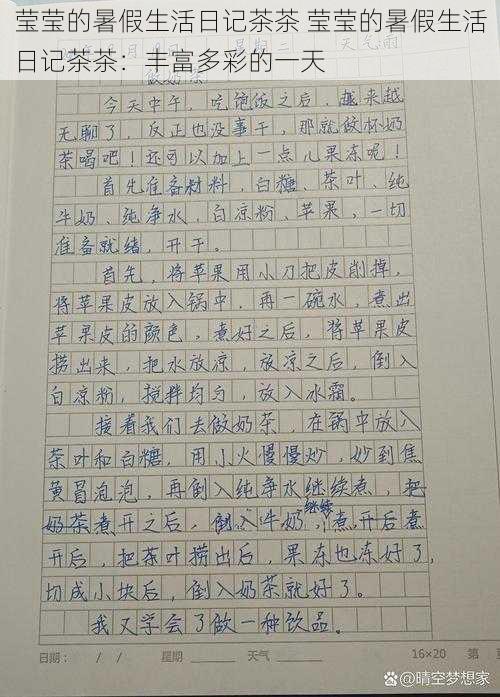 莹莹的暑假生活日记茶茶 莹莹的暑假生活
日记茶茶：丰富多彩的一天
星期二 天气雨
做奶茶
今天中午，吃饱饭之后，越来越
无聊了，反正也没事干，那就做杯奶
茶喝吧！还可以加上一点儿果冻呢！
首先准备材料，白糖、茶叶、纯
牛奶、纯净水，白凉粉、苹果，一切
准备就绪，开干。
首先，将苹果用小刀把皮削掉，
将苹果皮放入锅中，再一碗水，煮出
苹果皮的颜色，煮好之后，将苹果皮
捞出来，把水放凉，放凉之后，倒入
白凉粉，搅拌均匀，放入水霜。
接着我们去做奶茶，在锅中放入
茶叶和白糖，用小火慢慢炒，炒到焦
黄冒泡泡，再倒入纯净水继续煮，把
继续
奶茶煮开之后，倒入牛奶，煮开后煮
开后，把茶叶捞出后，果冻也冻好了，
切成小块后，倒入奶茶就好了。
我又学会了做一种饮品。
日期： / / 星期 天气 16×20 第
@晴空梦想家